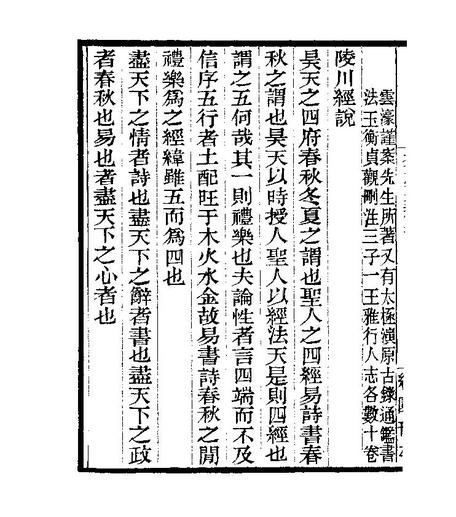 雲濠謹案先生所著又有太極演原古錄通鑑書
法玉衡貞觀刪注三子一王雅行人志各數十卷
陵川經說
昊天之四府春秋冬夏之謂也聖人之四經易詩書春
秋之謂也昊天以時授人聖人以經法天是則四經也
謂之五何哉其一則禮樂也夫論性者言四端而不及
信序五行者土配旺于木火水金故易書詩春秋之閒
禮樂爲之經緯雖五而爲四也
盡天下之情者詩也盡天下之辭者書也盡天下之政
者春秋也易也者盡天下之心者也